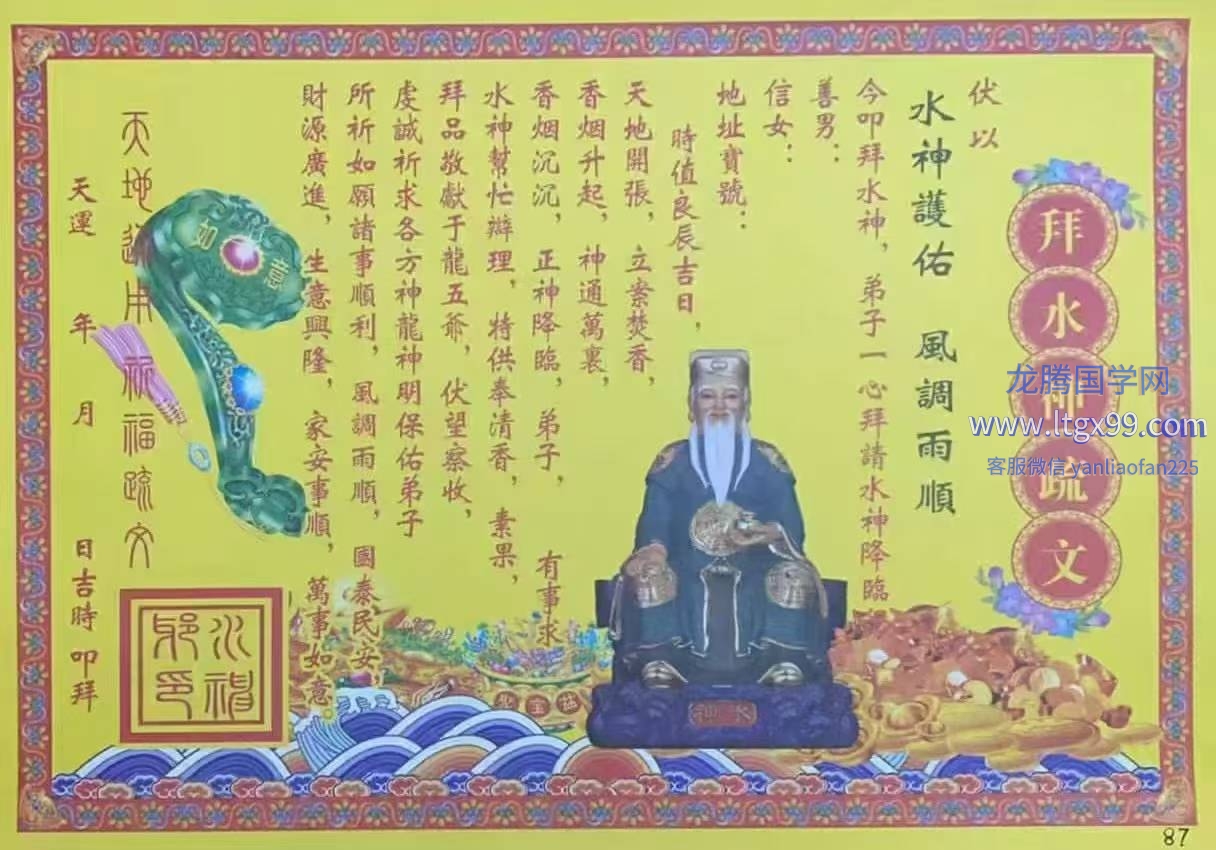 拜水神疏文
龙腾国学网
www.ltgx99.com
客服微信 yanliaofan225
伏以
水神護佑 風調雨順
今叩拜水神，弟子一心拜請水神降臨
善男：
信女：
地址寶號：
時值良辰吉日，
天地開張，立案焚香，
香烟升起，神通萬裏，
香烟沉沉，正神降臨，弟子， 有事求
水神幫忙辦理，特供奉清香，素果，
拜品敬獻于龍五爺，伏望察收，
虔誠祈求各方神龍神明保佑弟子
所祈如願諸事順利，風調雨順，國泰民安，
財源廣進，生意興隆，家安事順，萬事如意。
如意
天地通用祈福疏文
天運 年 月 日吉時 叩拜
水神
87